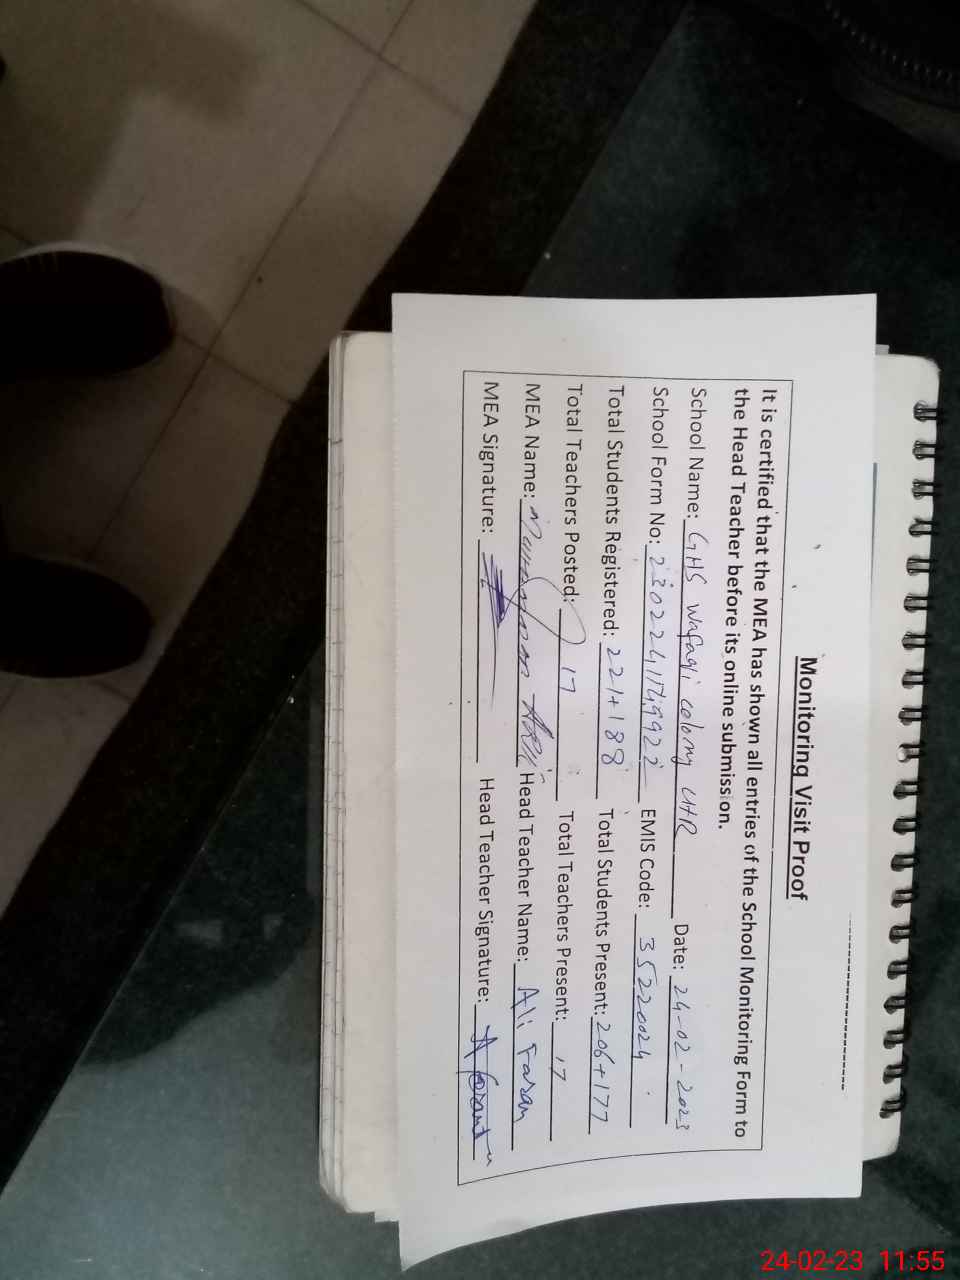 Monitoring Visit Proof
It is certified that the MEA has shown all entries of the School Monitoring Form to
the Head Teacher before its online submission.
School Name: GHS Wafaqi colony LHR Date: 24-02-2023
School Form No: EMIS Code: 35220024
Total Students Registered: 221+188 Total Students Present: 206+177
Total Teachers Posted: 17 Total Teachers Present: 17
MEA Name: Head Teacher Name: Ali Faran
MEA Signature: Head Teacher Signature:
24-02-23 11:55